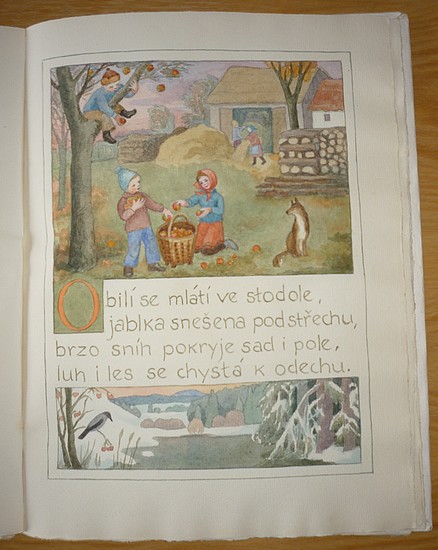 Obilí se mlátí ve stodole,
jablka snešena pod střechu,
brzo sníh pokryje sad i pole,
luh i les se chystá k odechu.